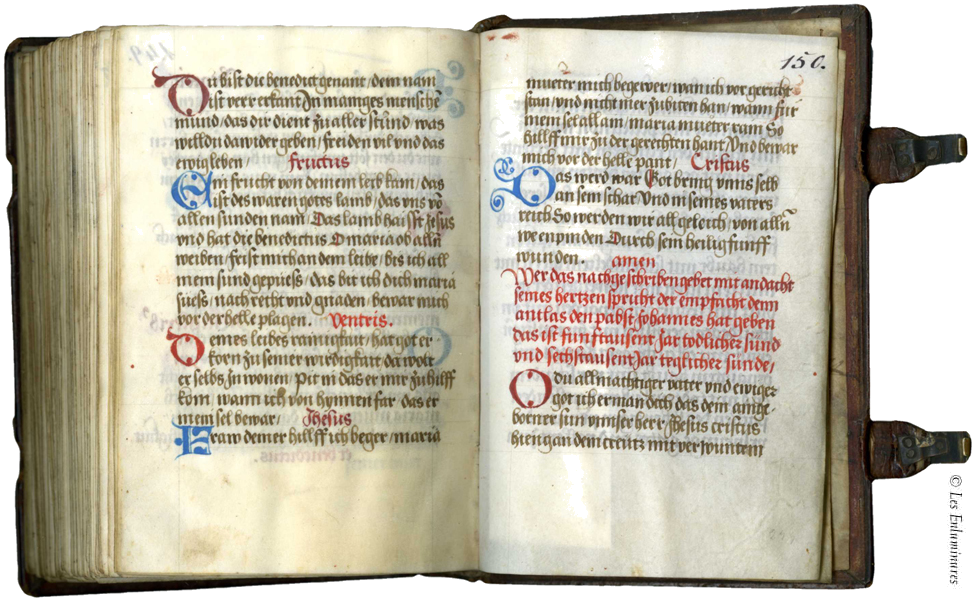 Du bist die benedict genant / dem nam
ist verr erkant In maniges mensche
mund / das dir dient zu aller stund / was
willdu dawider geben / freiden vil vnd das
ewig leben / fructus
Ein frucht von deinem leib kam / das
ist des waren gotes lamb / das vns vo
allen sunden nam / Das lamb haisst Jesus
vnd hat die benedictus O maria ob alln
weiben / frist mich an dem leibe / bis ich all
mein sund gepuess / das bit ich dich maria
suess / nach recht vnd gnaden / bewar mich
vor der helle plagen. Ventris.
Deines leibes rainigkait / hat got er
korn zu seiner wirdigkait / da wolt
er selbs In wonen / Pit in das er mir zu hilff
kom / wann ich von hynnen far das er
mein sel bewar / Jhesus
Fraw deiner hillff ich beger / maria
150.
mueter mich begewer / wan ich vor gericht
stan / vnd nicht mer zu biten han / wann fur
mein sel allain / maria mueter rain So
hillff mir zu der gerechten hant / Vnd bewar
mich vor der helle pant / Cristus
Das werd war Got bring vnns selb
an sein schar / Vnd in seines vaters
reich So werden wir all geleich / von alln
we enpinden Durch sein heilig funff
wunden. amen
Wer das nachgeschriben gebet mit andacht
seines hertzen spricht der empfacht den
antlas den pabst Johannes hat geben
das ist funftausent Jar todlicher sund
vnd sechstausent Jar teglicher sunde /
O du allmachtiger vatter vnd ewiger
got ich erman dich das dein ainge
borner sun vnnser herr Jhesus cristus
hieng an dem creutz mit verwuntem
© Les Enluminures